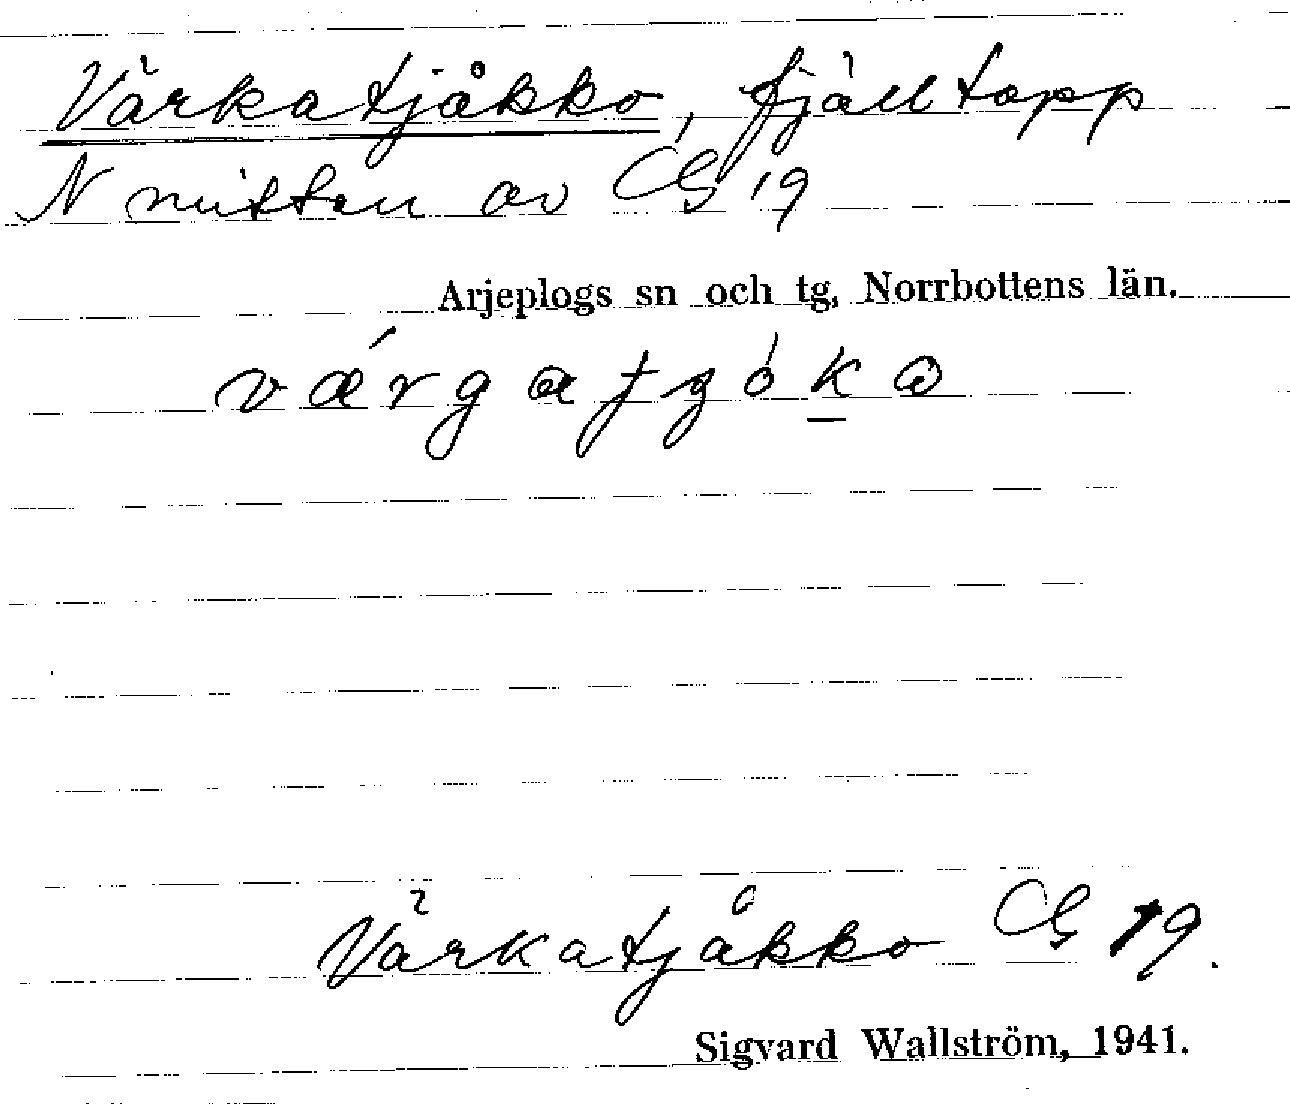 Värkatjåkko, fjälltopp
N mitten av CG 19
Arjeplogs sn och tg, Norrbottens län.
Värkatjåkko CG 19.
Sigvard Wallström, 1941.